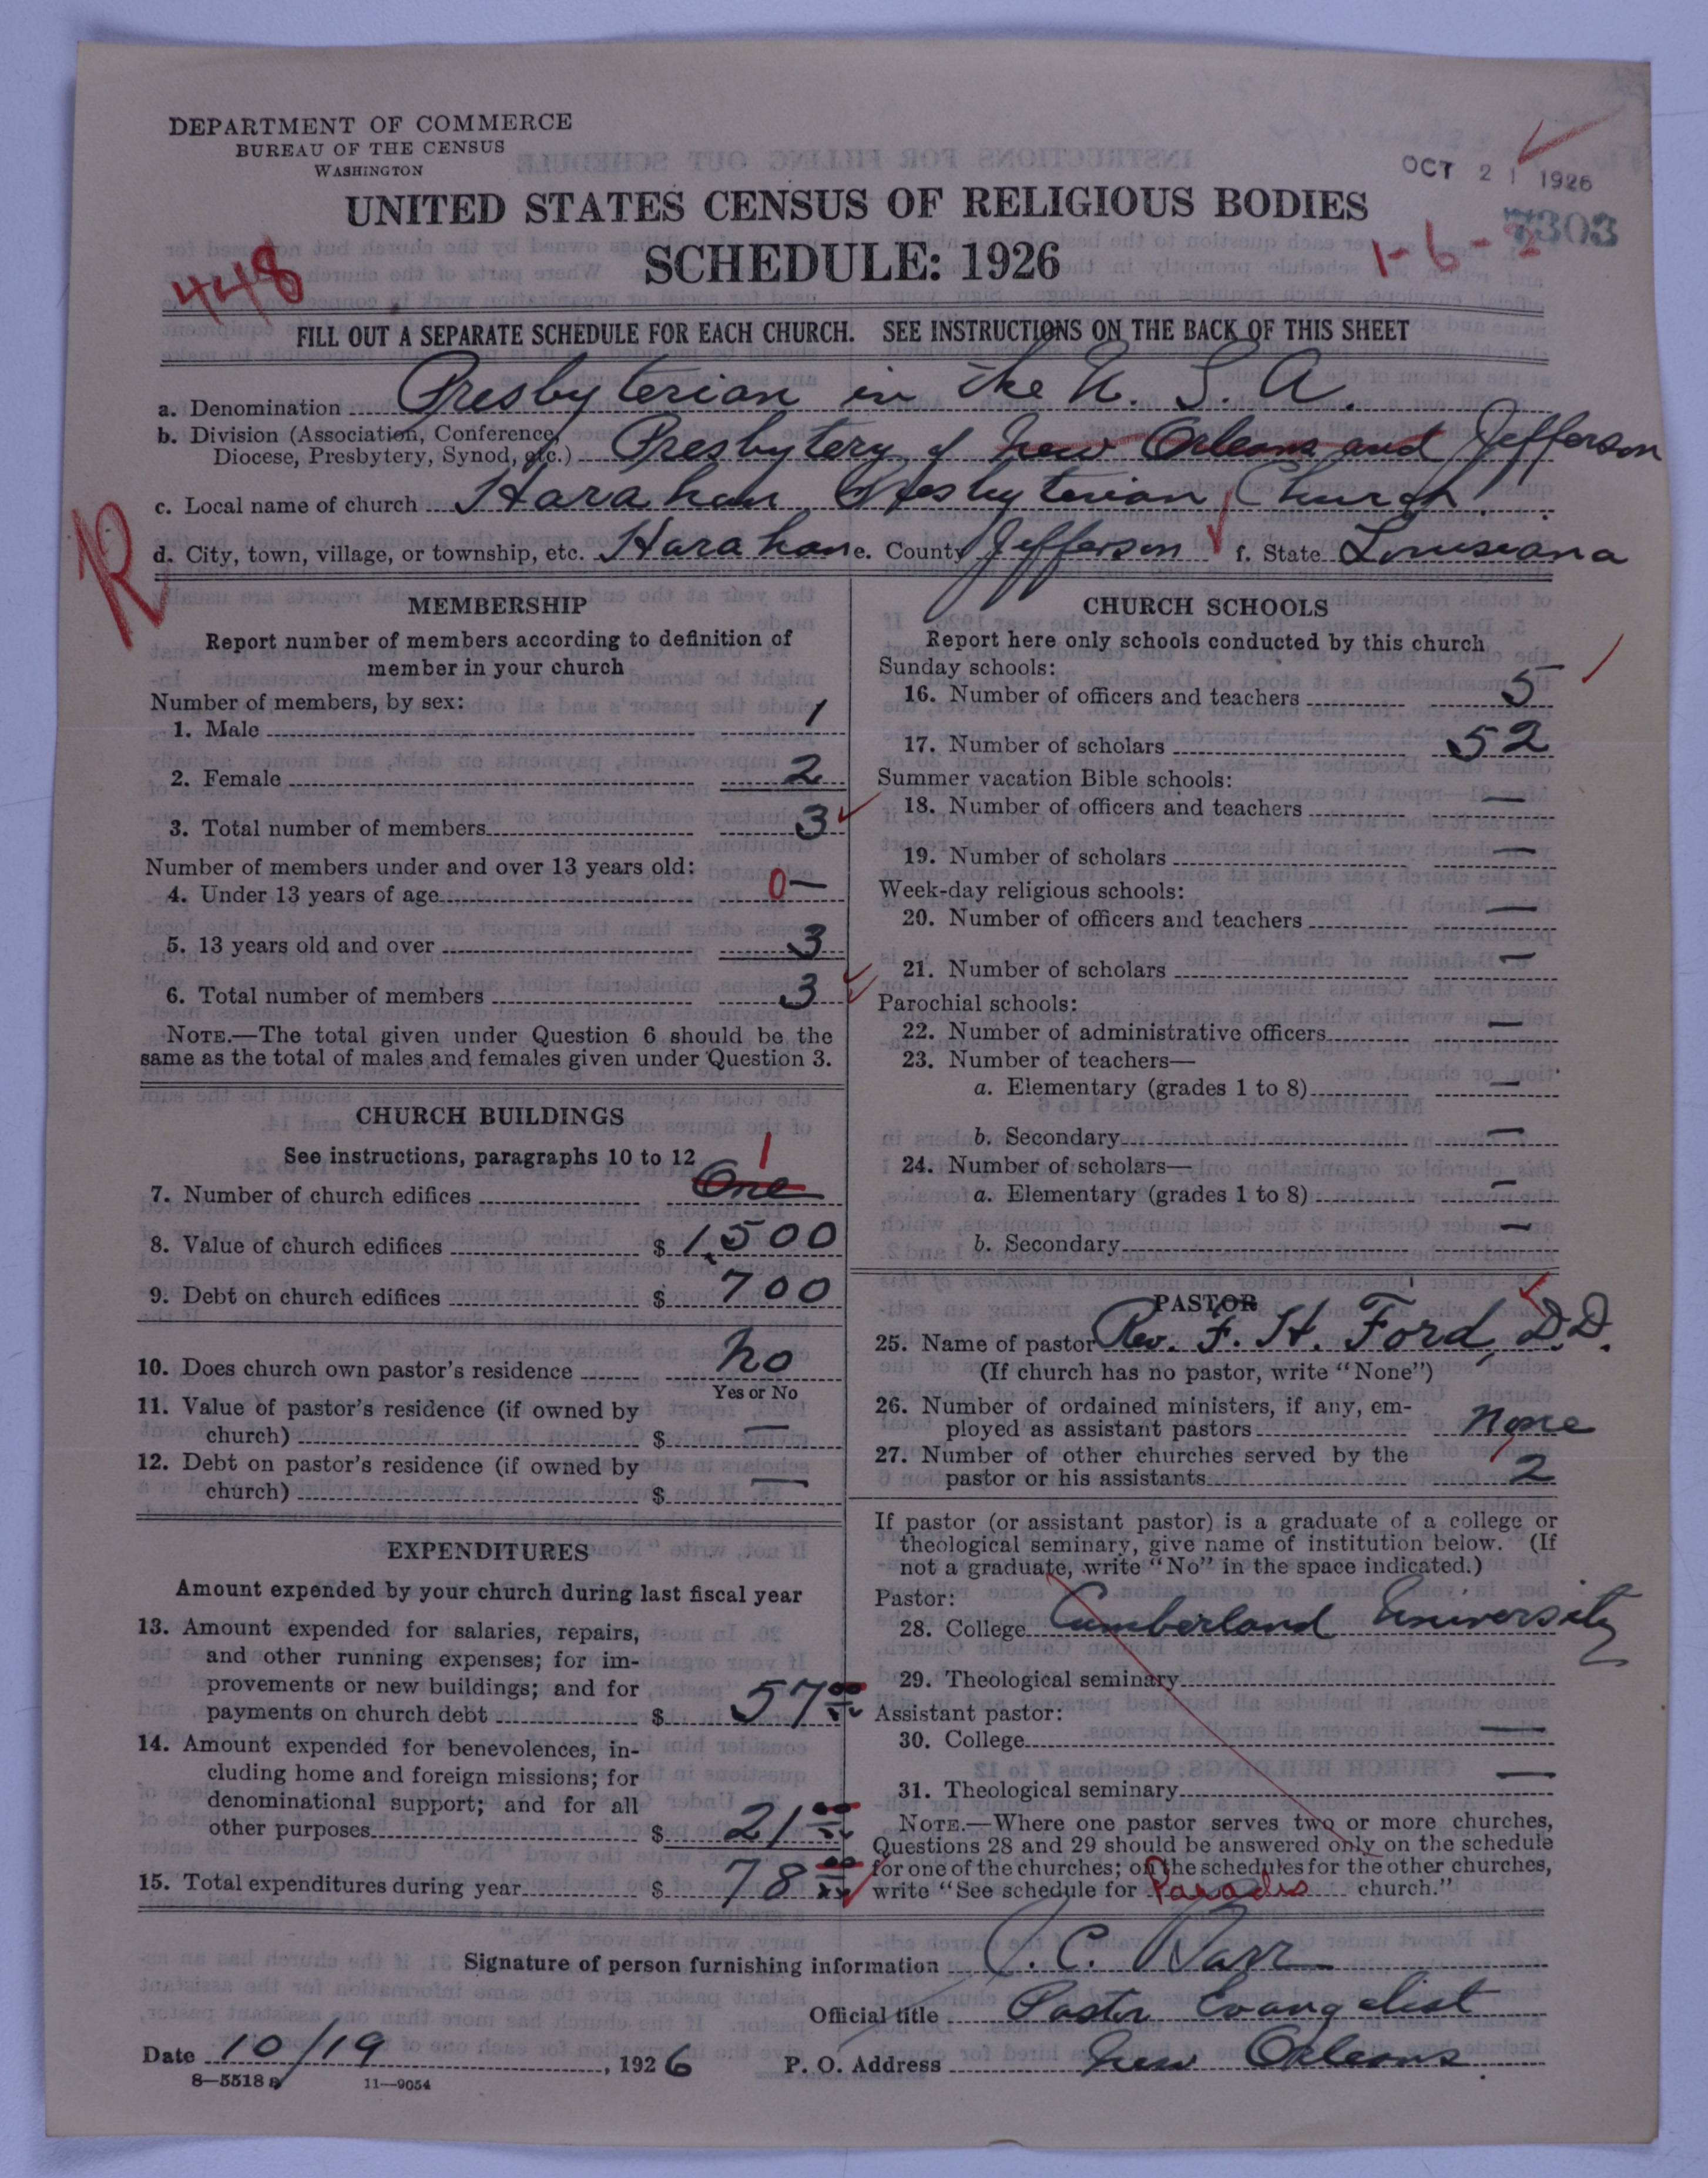 DEPARTMENT OF COMMERCE
BUREAU OF THE CENSUS
WASHINGTON
OCT 21 1926
7303
UNITED STATES CENSUS OF RELIGIOUS BODIES
SCHEDULE: 1926
448
1-6-2
FILL OUT A SEPARATE SCHEDULE FOR EACH CHURCH. SEE INSTRUCTIONS ON THE BACK OF THIS SHEET
a. Denomination Presbyterian in the U. S. A.
b. Division (Association, Conference,
Diocese, Presbytery, Synod, etc.) Presbytery of New Orleans and Jefferson
c. Local name of church Harahan Presbyterian Church
R
d. City, town, village, or township, etc. Harahan e. County Jefferson f. State Louisiana
MEMBERSHIP
Report number of members according to definition of
member in your church
Number of members, by sex:
1. Male 1
2. Female 2
3. Total number of members 3
Number of members under and over 13 years old:
4. Under 13 years of age 0 —
5. 13 years old and over 3
6. Total number of members 3
NOTE.—The total given under Question 6 should be the
same as the total of males and females given under Question 3.
CHURCH BUILDINGS
See instructions, paragraphs 10 to 12
1
7. Number of church edifices One
8. Value of church edifices $ 1,500
9. Debt on church edifices $ 700
10. Does church own pastor's residence No
Yes or No
11. Value of pastor's residence (if owned by
church) $ —
12. Debt on pastor's residence (if owned by
church) $ —
EXPENDITURES
Amount expended by your church during last fiscal year
13. Amount expended for salaries, repairs,
and other running expenses; for im-
provements or new buildings; and for
payments on church debt $ 57 00
14. Amount expended for benevolences, in-
cluding home and foreign missions; for
denominational support; and for all
other purposes $ 21 00
15. Total expenditures during year $ 78 00
CHURCH SCHOOLS
Report here only schools conducted by this church
Sunday schools:
16. Number of officers and teachers 5
17. Number of scholars 52
Summer vacation Bible schools:
18. Number of officers and teachers —
19. Number of scholars —
Week-day religious schools:
20. Number of officers and teachers —
21. Number of scholars —
Parochial schools:
22. Number of administrative officers —
23. Number of teachers—
a. Elementary (grades 1 to 8) —
b. Secondary —
24. Number of scholars—
a. Elementary (grades 1 to 8) —
b. Secondary —
PASTOR
25. Name of pastor Rev. F. H. Ford, D.D.
(If church has no pastor, write "None")
26. Number of ordained ministers, if any, em-
ployed as assistant pastors none
27. Number of other churches served by the
pastor or his assistants 2
If pastor (or assistant pastor) is a graduate of a college or
theological seminary, give name of institution below. (If
not a graduate, write "No" in the space indicated.)
Pastor:
28. College Cumberland University
29. Theological seminary
Assistant pastor:
30. College —
31. Theological seminary —
NOTE.—Where one pastor serves two or more churches,
Questions 28 and 29 should be answered only on the schedule
for one of the churches; on the schedules for the other churches,
write "See schedule for Paradis church."
Signature of person furnishing information J. C. Barr
Official title Pastor Evangelist
Date 10/19, 1926 P. O. Address New Orleans
8—5518 a 11—9054